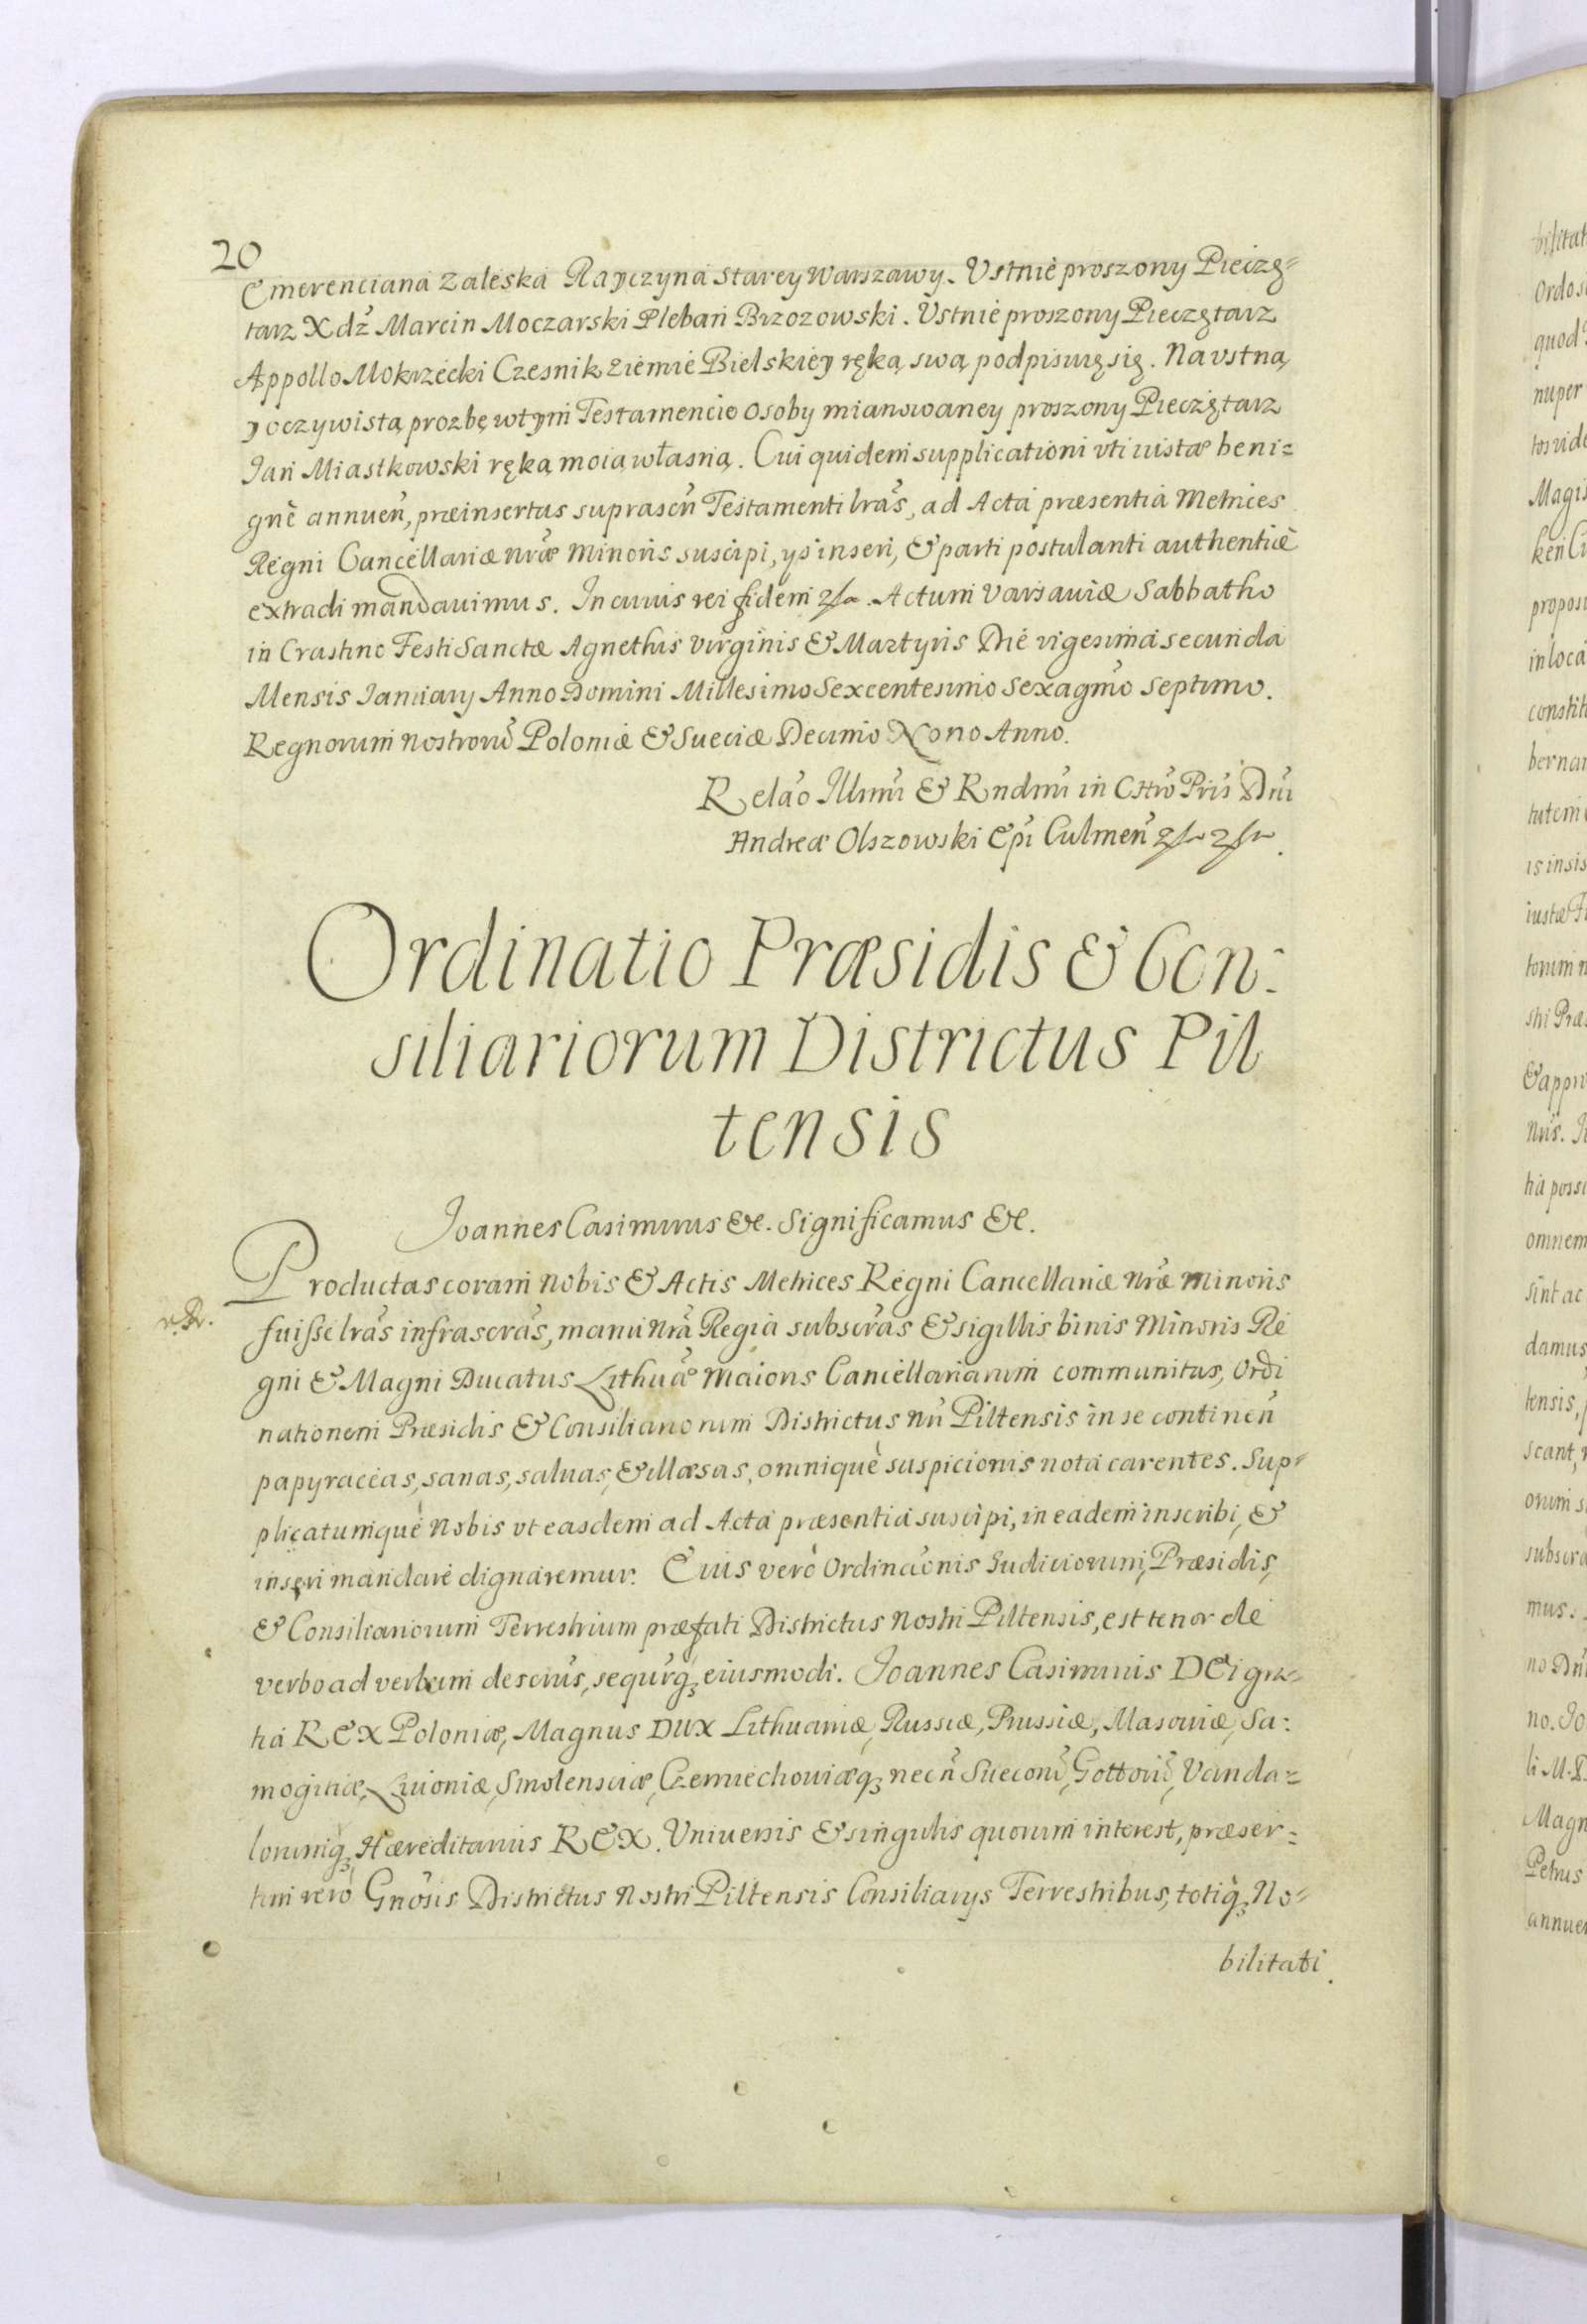 20
Emerenciana Zaleska Rayczyna Starey Warszawy. Vstnie proszony Pieczę=
tarz Xdź Marcin Moczarski Pleban Brzozowski. Vstnie proszony Pieczętarz
Appollo Mokrzecki Czesnik ziemie Bielskiey ręką swą podpisuię się. Na vstną
y oczywistą prozbę wtym Testamencie osoby mianowaney proszony Pieczętarz
Jan Miastkowski ręką moią własną. Cui quidem supplicationi vti iustæ beni=
gnè annueñ, præinsertas suprascñ Testamenti lras, ad Acta præsentia Metrices
Regni Cancellariæ nræ Minoris suscipi, ys inseri, & parti postulanti authenticè
extradi mandauimus. In cuius rei fidem. Actum Varsauiæ Sabbatho
in Crastino Festi Sanctæ Agnethis Virginis & Martyris Die vigesima secunda
Mensis Januarij Anno Domini Millesimo Sexcentesimo Sexagmo Septimo.
Regnorum nostrorũ Poloniæ & Sueciæ Decimo Nono Anno.
Relão Illmi & Rndmi in Chro Pris Dni
Andreæ Olszowski Epi Culmeñ
Ordinatio Præsidis & Con:
siliariorum Districtus Pil
tensis
Joannes Casimirus &c. Significamus &c.
Productas coram nobis & Actis Metrices Regni Cancellariæ nræ Minoris
fuisse lras infrascras, manu nrã Regia subscras & sigillis binis Minoris Re
gni & Magni Ducatus Lithuæ Maioris Cancellariarum communitas, Ordi
nationem Præsidis & Consiliariorum Districtus nri Piltensis in se contineñ
papyraceas, sanas, saluas, & illæsas, omnique suspicionis nota carentes. Sup=
plicatumque nobis vt easdem ad Acta præsentia suscipi, in eadem inscribi, &
inseri mandare dignaremur. Cuius vero Ordinãonis Judiciorum, Præsidis,
& Consiliariorum Terrestrium præfati Districtus nostri Piltensis, est tenor de
verbo ad verbum descrus, sequrq3 eiusmodi. Joannes Casimirus DEI gra=
tia REX Poloniæ, Magnus DUX Lithuaniæ, Russiæ, Prussiæ, Masouiæ, Sa:
mogitiæ, Liuoniæ, Smolensciæ, Czerniechouiæq3 necñ Suecorũ, Gottorũ, Vanda=
lorumq3 Hæreditarius REX. Vniuersis & singulis quorum interest, præser=
tim vero Gnosis Districtus nostri Piltensis Consiliarys Terrestribus, totiq3 No=
bilitati